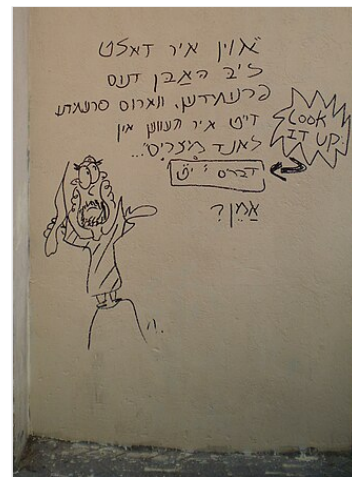 "און איר זאלט
ליב האָבן דעם
פרעמדען, ווארום פרעמדע
זייט איר געווען אין
לאנד מִצְרַיִם"...
LOOK
IT UP!
דברים י' יט
אָמֵן?